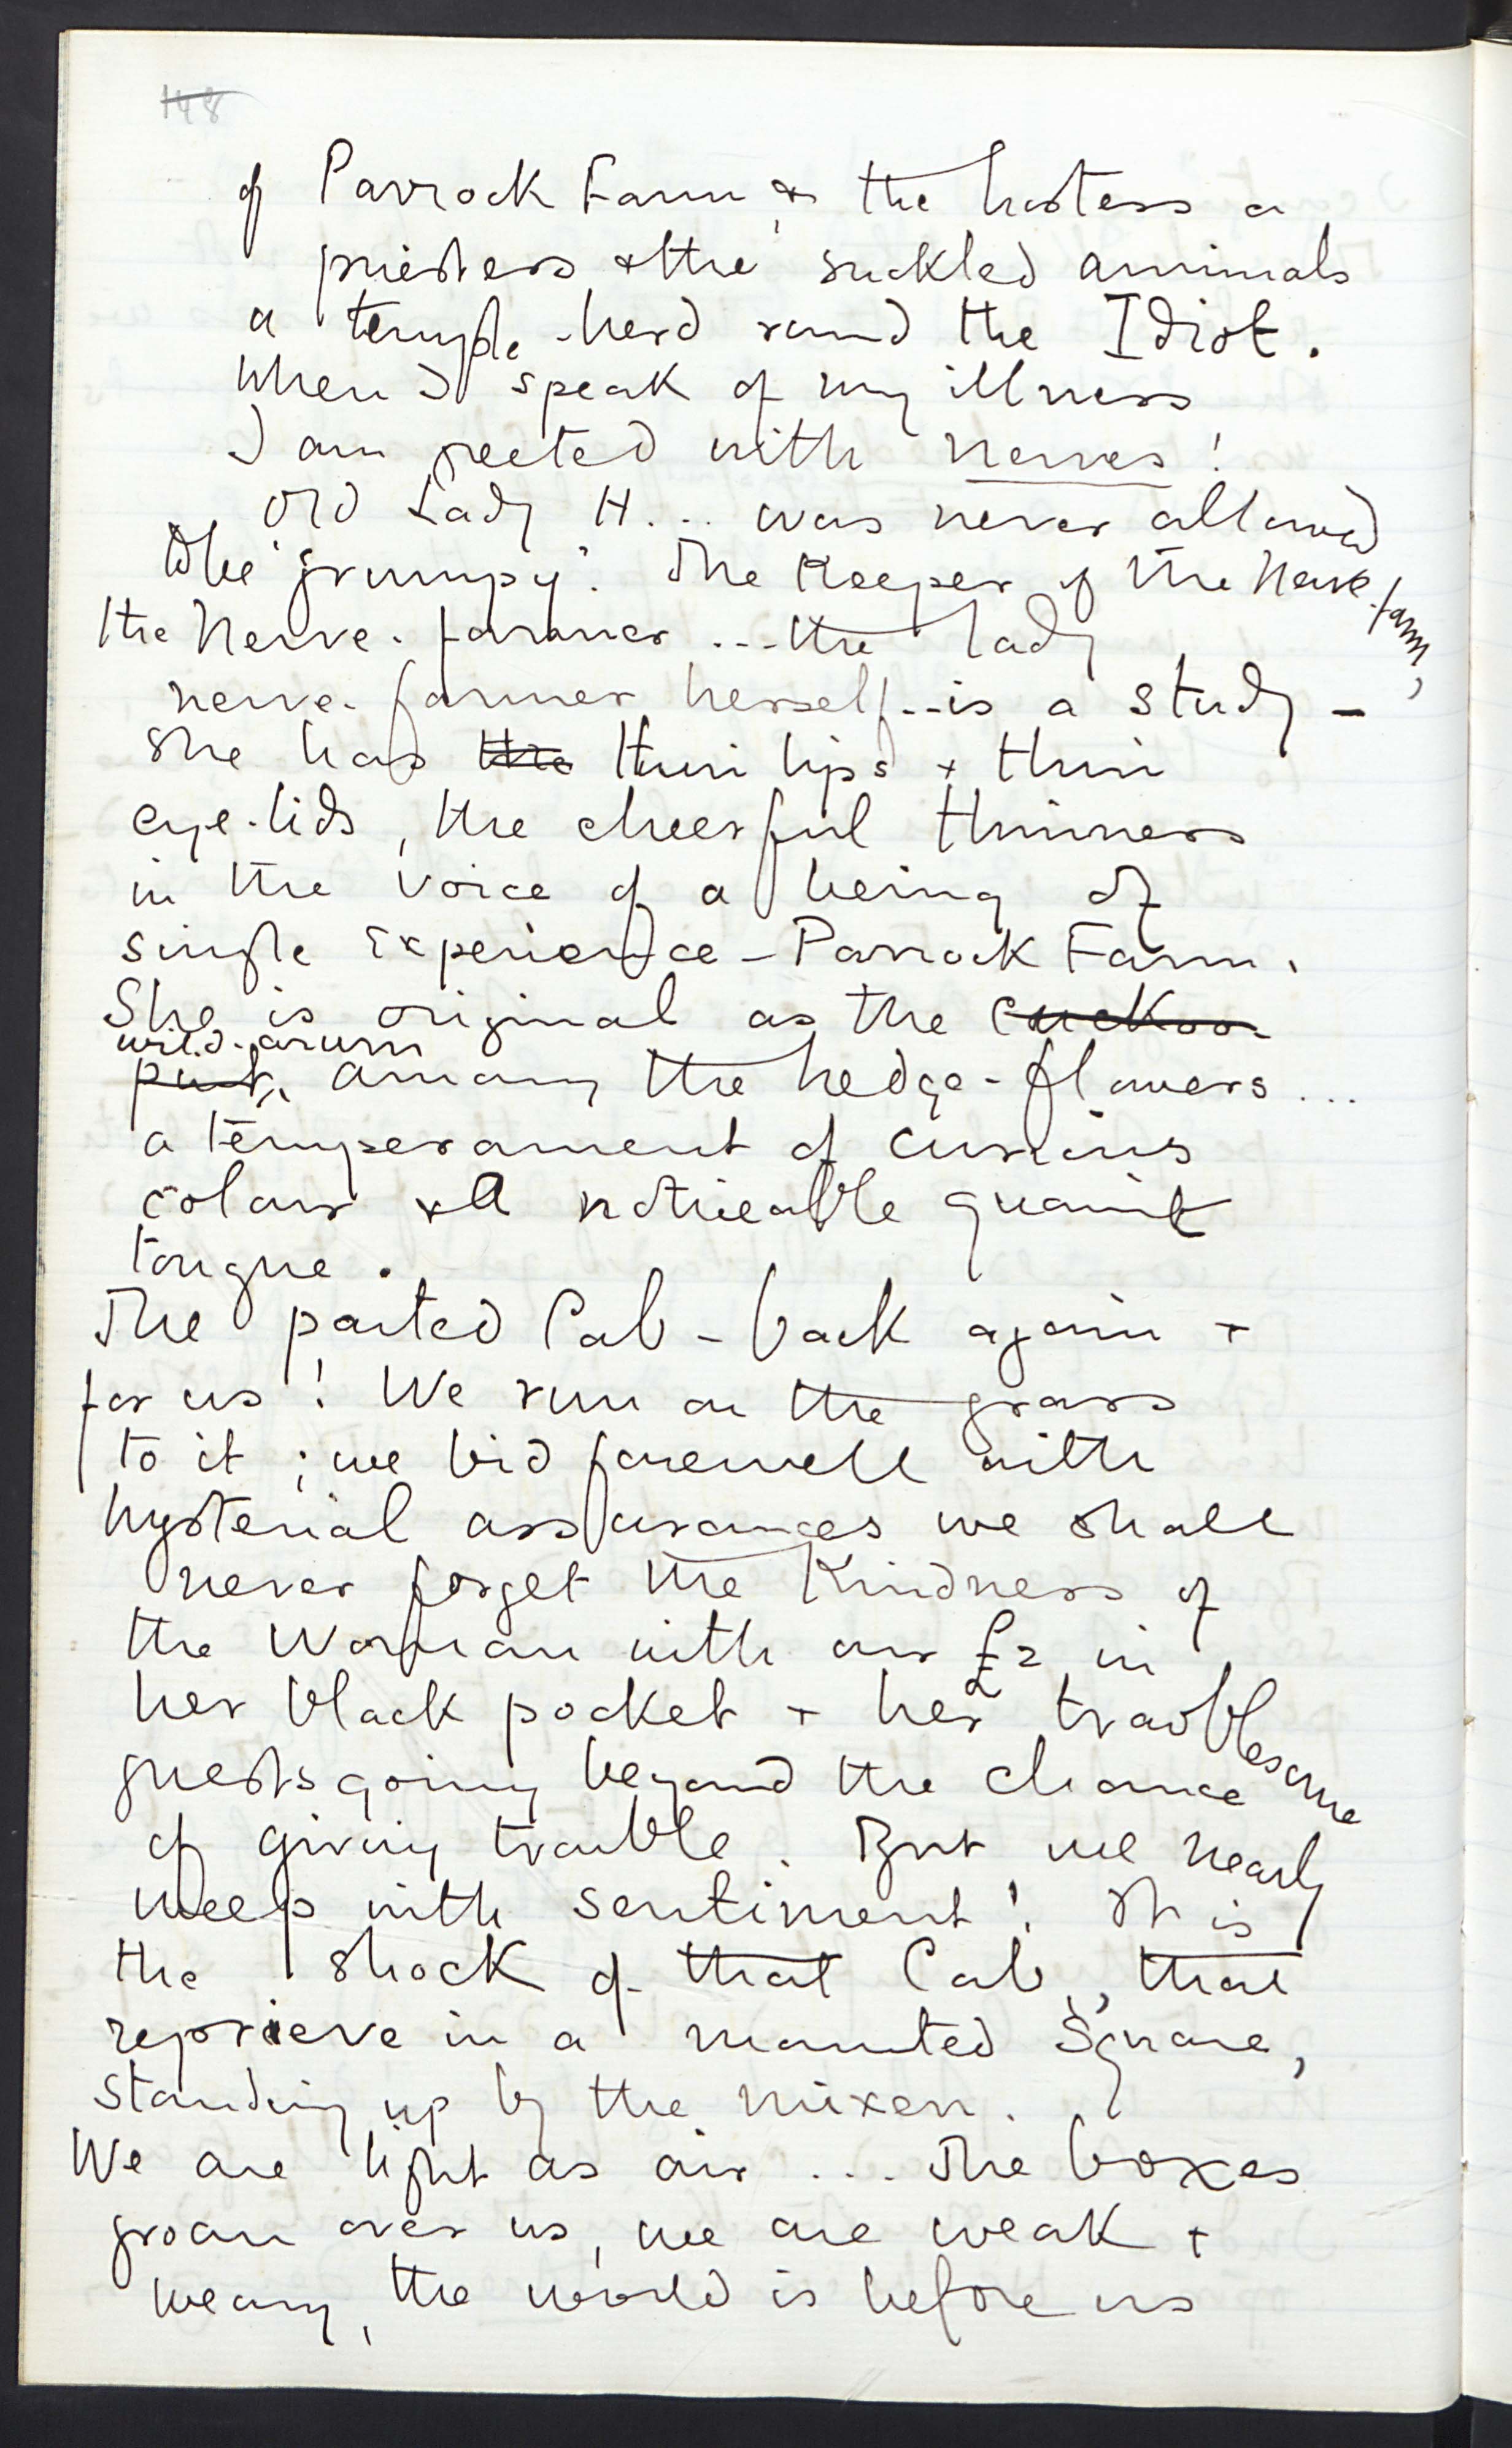 148
of Parrock Farm, & the hostess a
priestess & the suckled animals
a temple-herd round the Idiot.
When I speak of my illness
I am greeted with nerves!
Old Lady H... was never allowed
to be "grumpy". The Keeper of the Nerve-farm,
the Nerve-farmer ... the lady
nerve-farmer herself -- is a study -
She has the thin lips & thin
eye-lids, the cheerful thinness
in the voice of a being of
single experience - Parrock Farm.
She is original as the cuckoo-
wild-arum
pint, among the hedge-flowers ...
a temperament of curious
colour & a noticeable quaint
tongue.
The parted Cab - back again &
for us! We run on the grass
to it; we bid farewell with
hysterial assurances we shall
never forget the Kindness of
the Woman with our £2 in
her black pocket & her troublesome
guests going beyond the chance
of giving trouble. But we nearly
weep with sentiment! It is
the shock of that Cab, that
reprieve in a mounted Square,
standing up by the mixen.
We are light as air ... The boxes
groan over us, we are weak &
weary, the world is before us